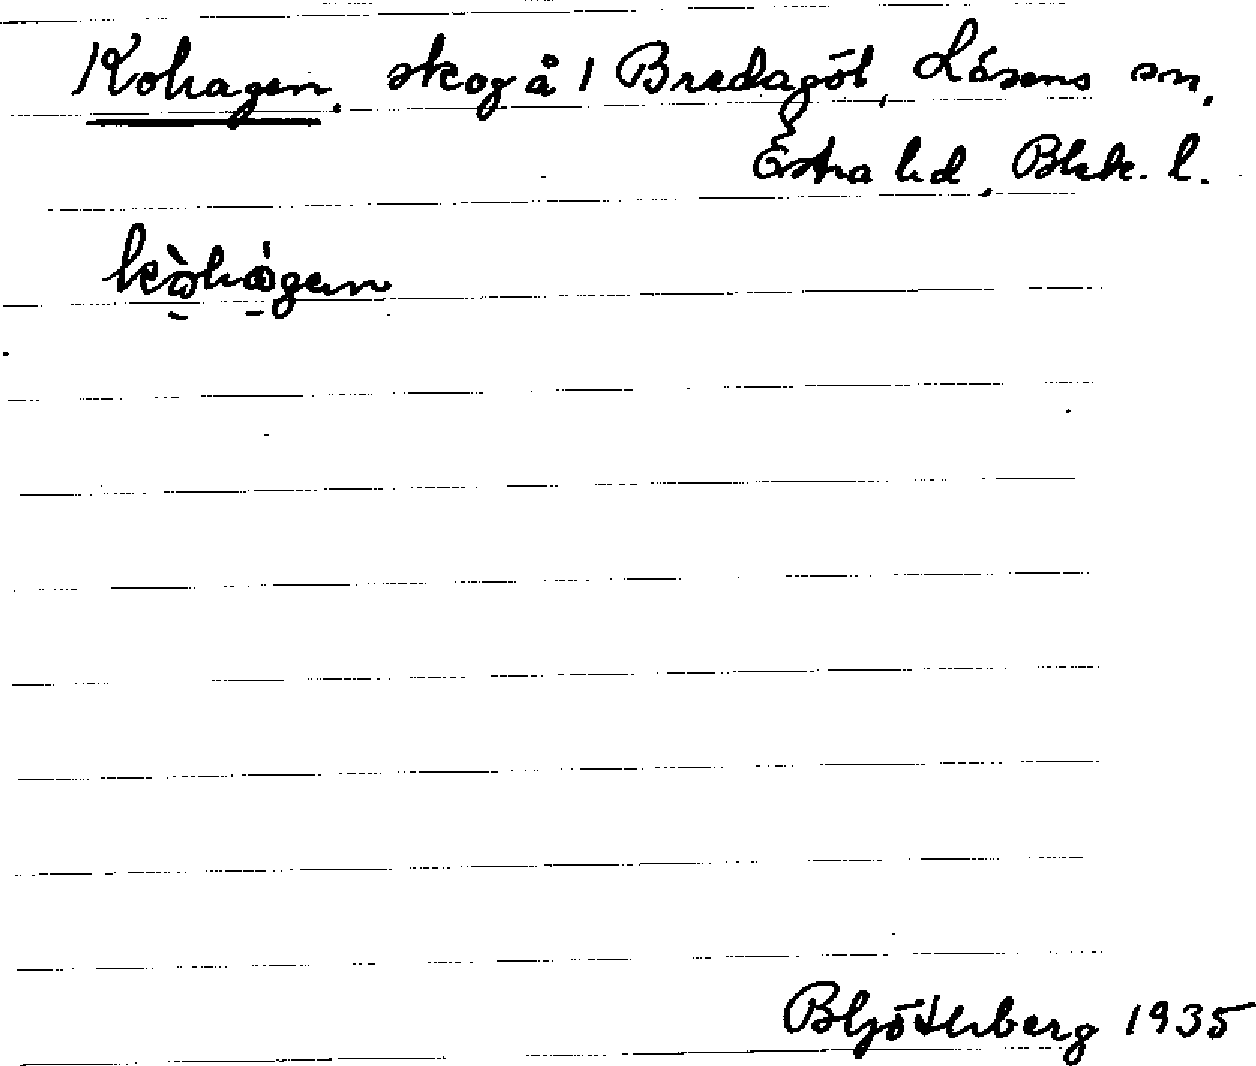 Kohagen. skog å 1 Bredagöl, Lösens sn,
Östra hd, Blek. l.
kòhágen
BHjöthberg 1935